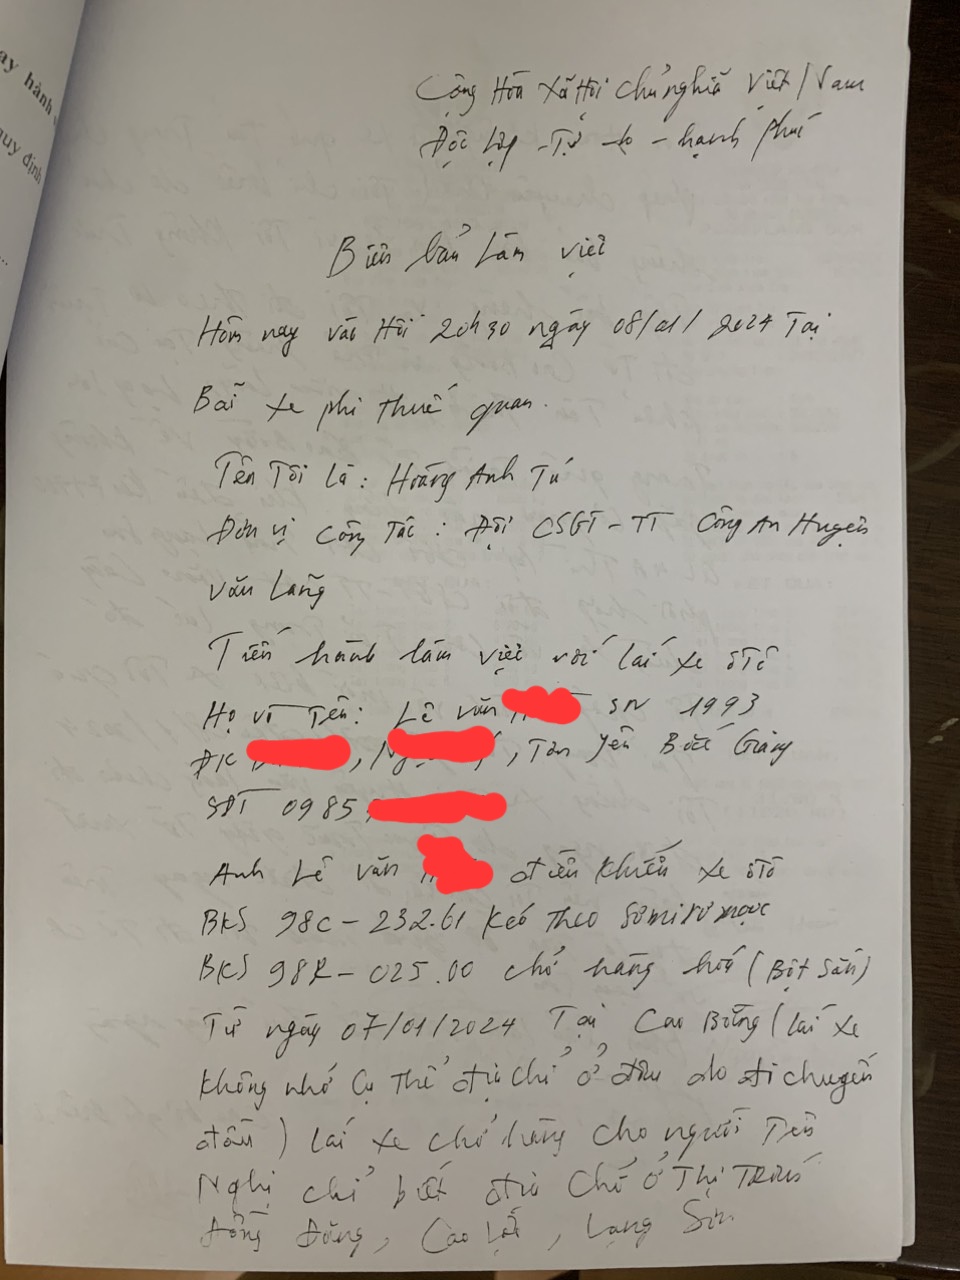 ay hành
quy định
...
Cộng Hòa Xã Hội chủ nghĩa Việt Nam
Độc lập - Tự do - hạnh phúc
Biên bản làm việc
Hôm nay vào Hồi 20h30 ngày 08/01/2024 Tại
Bãi xe phi thuế quan.
Tên Tôi là: Hoàng Anh Tú
Đơn vị công Tác: Đội CSGT-TT Công An Huyện
Văn Lãng
Tiến hành làm việc với lái xe ôTô
Họ và Tên: Lê văn SN 1993
ĐK , , Tân Yên Bắc Giang
SĐT 0985
Anh Lê văn điều khiển xe ôTô
BKS 98C-232.61 kéo theo Sơmi rơ moọc
BKS 98R-025.00 chở hàng hóa (Bột sắn)
Từ ngày 07/01/2024 Tại Cao Bằng (lái xe
không nhớ cụ thể địa chỉ ở đâu do đi chuyến
đầu) lái xe chở hàng cho người Tên
Nghị chỉ biết địa chỉ ở Thị Trấn
Đồng Đăng, Cao Lộc, Lạng Sơn.